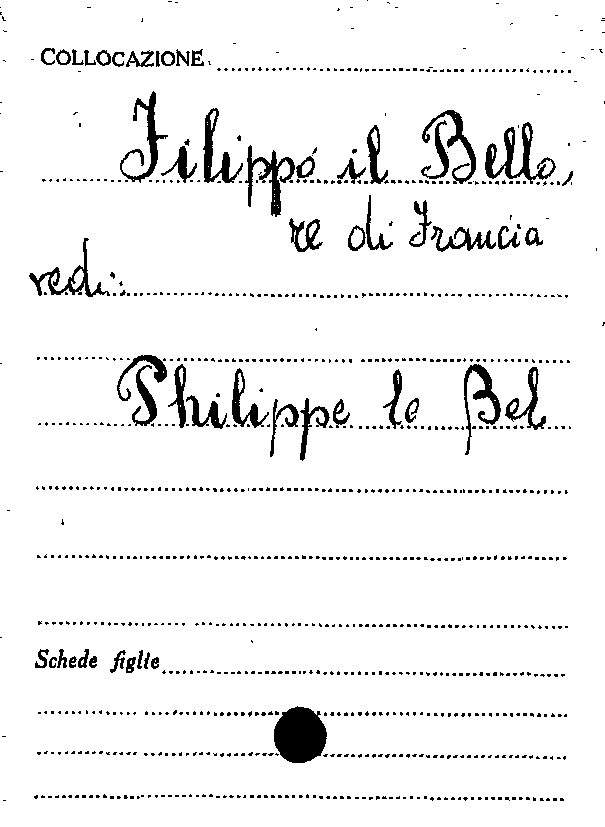 COLLOCAZIONE
Filippo il Bello,
re di Francia
vedi:
Philippe le Bel
Schede figlie